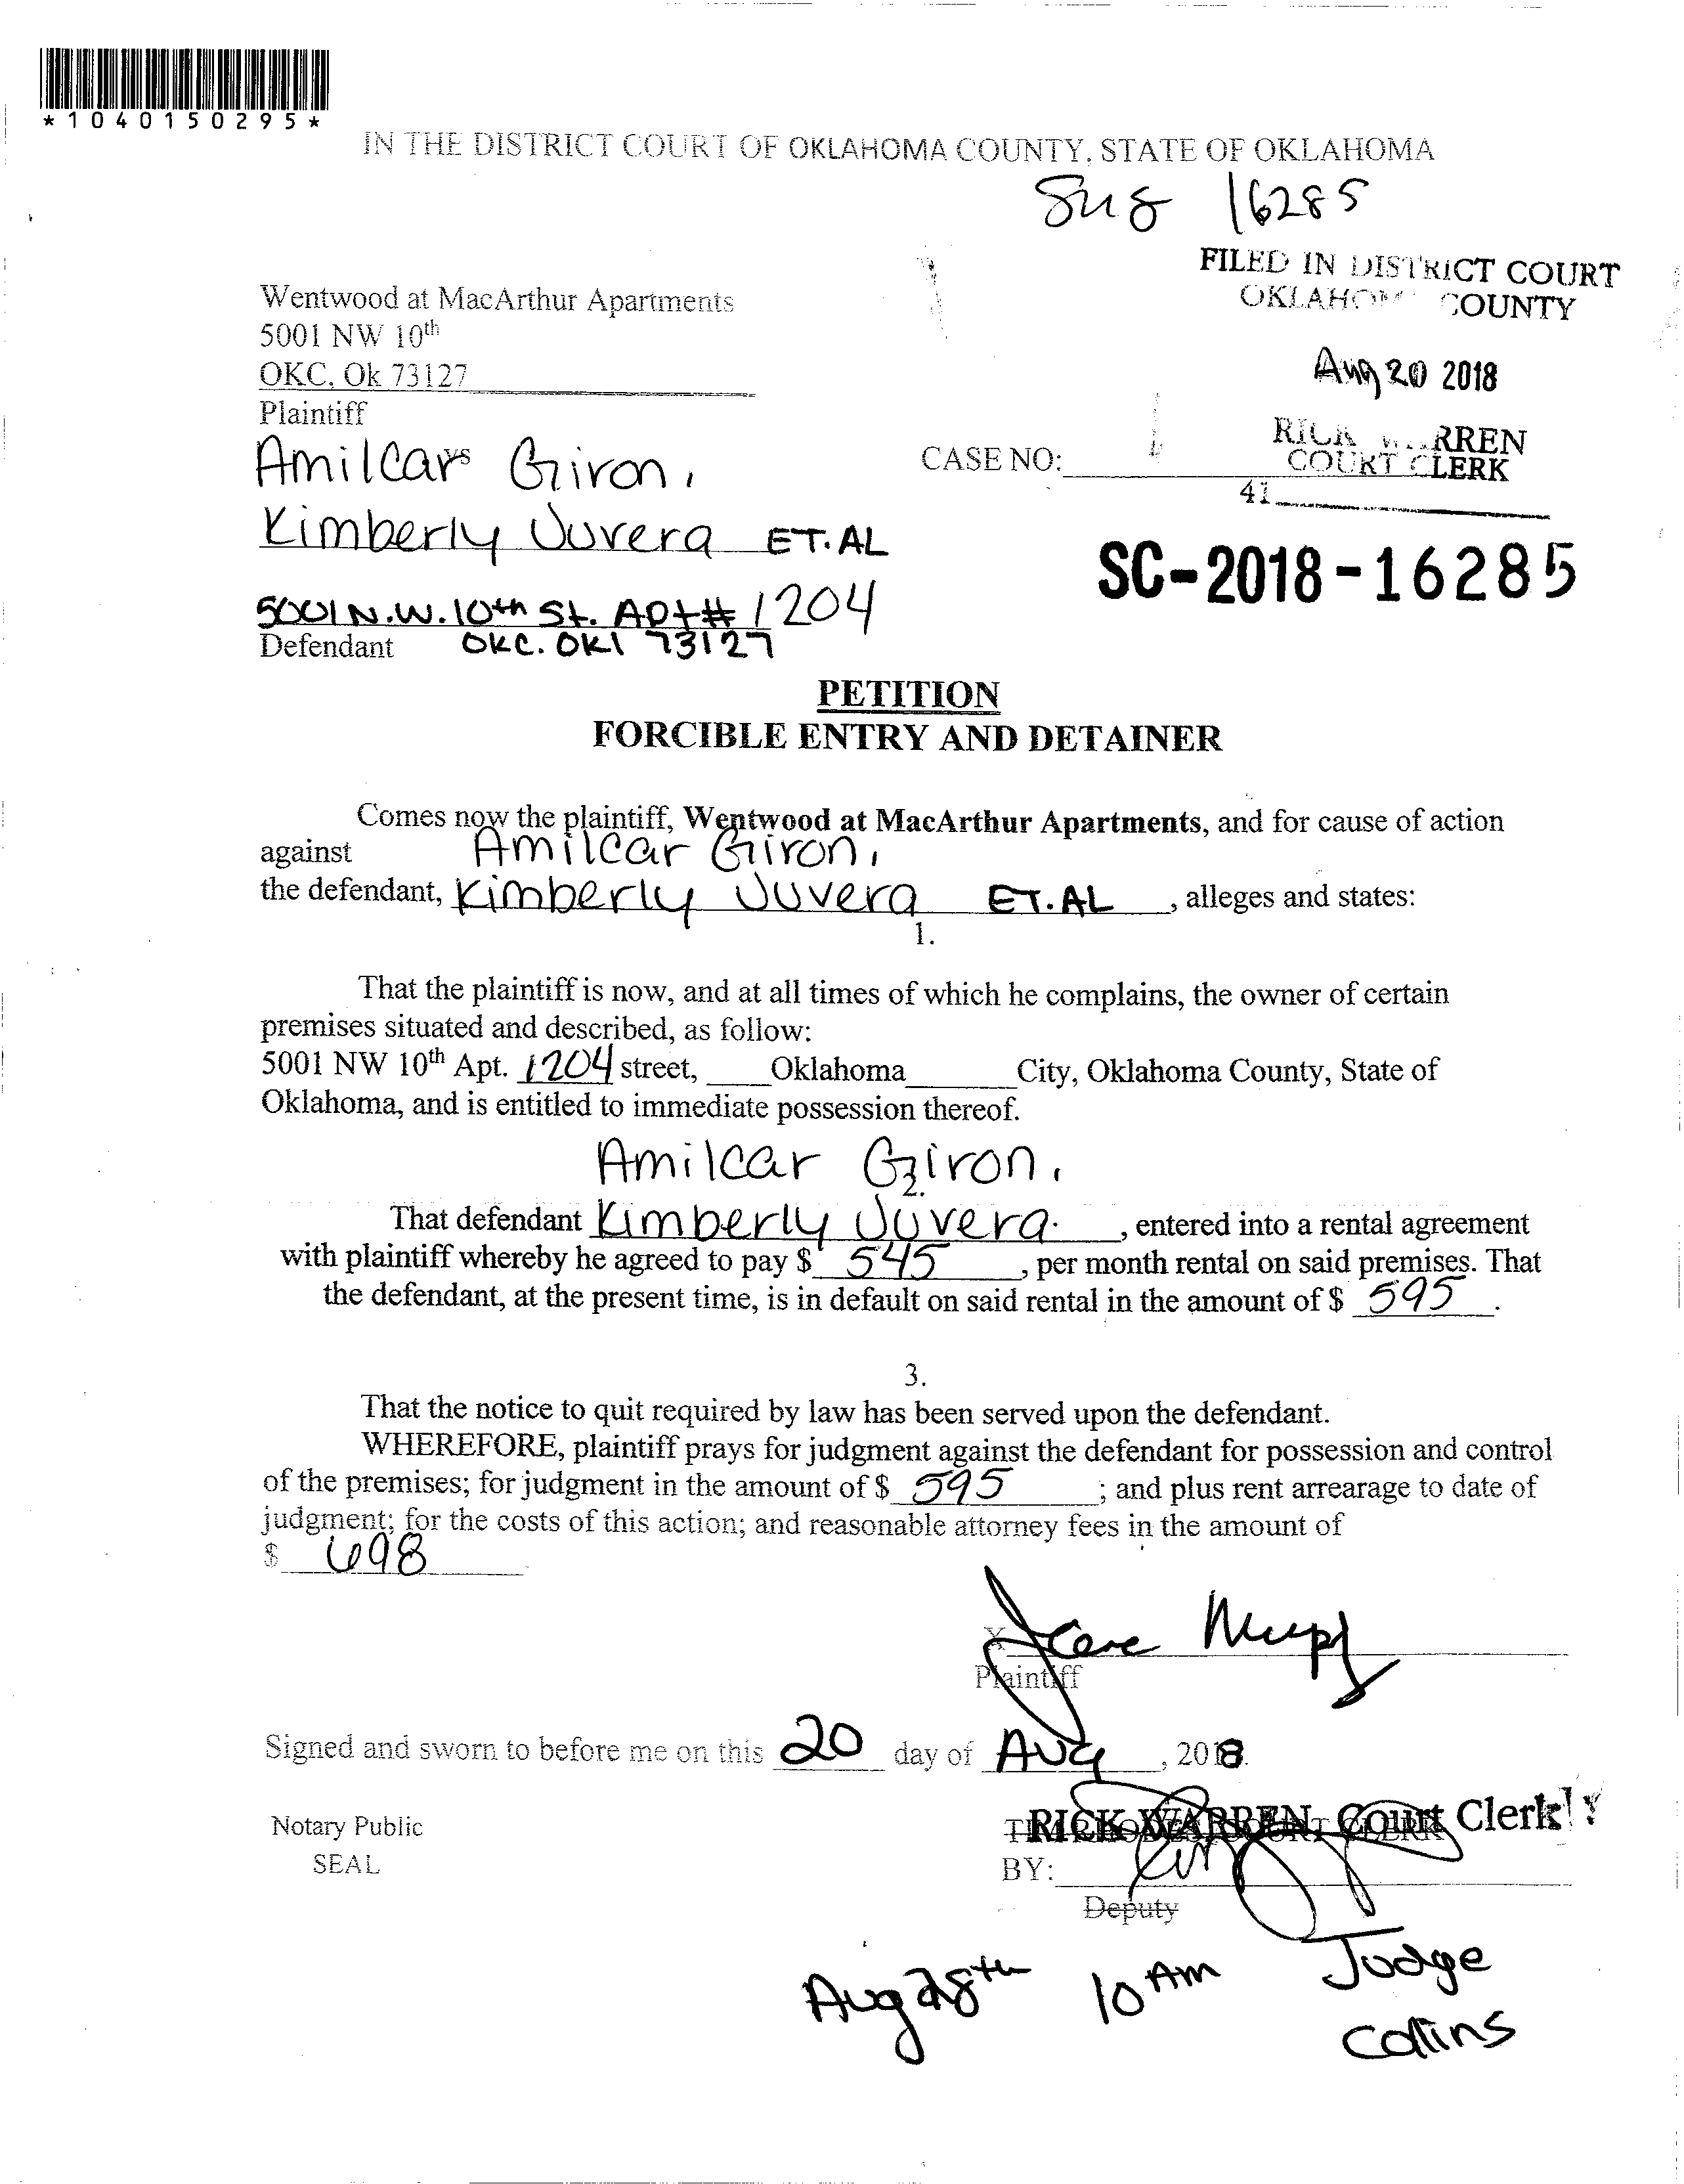 *1040150295*
IN THE DISTRICT COURT OF OKLAHOMA COUNTY, STATE OF OKLAHOMA
16285
FILED IN DISTRICT COURT
OKLAHOMA COUNTY
Wentwood at MacArthur Apartments
5001 NW 10th
OKC, Ok 73127
Aug 20 2018
Plaintiff
RICK WARREN
COURT CLERK
41
Amilcar Giron,
CASE NO:
Kimberly Juvera ET.AL
SC-2018-16285
5001 N.W. 10th St. Apt# 1204
Defendant OKC. OKl 73127
PETITION
FORCIBLE ENTRY AND DETAINER
Comes now the plaintiff, Wentwood at MacArthur Apartments, and for cause of action
against Amilcar Giron,
the defendant, Kimberly Juvera ET.AL, alleges and states:
1.
That the plaintiff is now, and at all times of which he complains, the owner of certain
premises situated and described, as follow:
5001 NW 10th Apt. 1204 street, Oklahoma City, Oklahoma County, State of
Oklahoma, and is entitled to immediate possession thereof.
Amilcar Giron,
2.
That defendant Kimberly Juvera., entered into a rental agreement
with plaintiff whereby he agreed to pay $ 545, per month rental on said premises. That
the defendant, at the present time, is in default on said rental in the amount of $ 595.
3.
That the notice to quit required by law has been served upon the defendant.
WHEREFORE, plaintiff prays for judgment against the defendant for possession and control
of the premises; for judgment in the amount of $ 595; and plus rent arrearage to date of
judgment; for the costs of this action; and reasonable attorney fees in the amount of
$ 698
X
Plaintiff
Signed and sworn to before me on this 20 day of Aug, 2018.
Notary Public
SEAL
RICK WARREN, Court Clerk
BY:
Deputy
Aug 28th 10 AM Judge
Collins